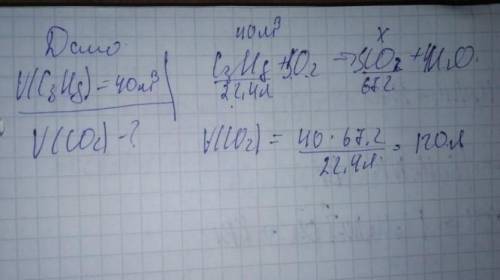 Дано
V(C₃H₈) = 40м³
V(CO₂) - ?
40м³ x
C₃H₈ + 5O₂ → 3CO₂ + 4H₂O.
22,4л 67,2
V(CO₂) = 40 · 67,2 / 22,4л = 120л